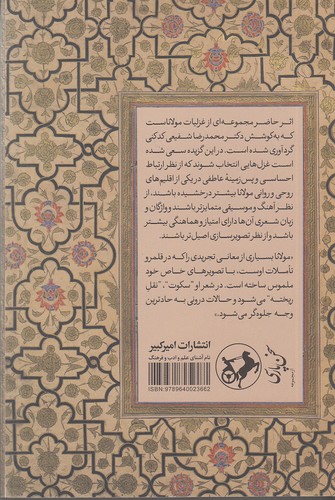 اثر حاضر مجموعه‌ای از غزلیات مولاناست
که به کوشش دکتر محمدرضا شفیعی کدکنی
گردآوری شده است. در این گزیده سعی شده
است غزل‌هایی انتخاب شوند که از نظر ارتباط
احساسی و پس‌زمینهٔ عاطفی در یکی از اقلیم‌های
روحی و روانی مولانا بیشتر درخشیده باشند، از
نظر آهنگ و موسیقی متمایزتر باشند و واژگان و
زبان شعری آن‌ها دارای امتیاز و هماهنگی بیشتر
باشد و از نظر تصویرسازی اصیل‌تر باشند.
«مولانا بسیاری از معانی تجریدی را که در قلمرو
تأملات اوست، با تصویرهای خاص خود
ملموس ساخته است. در شعر او «سکوت»، «نقل
ریخته» می‌شود و حالات درونی به حادترین
وجه جلوه‌گر می‌شود.»
انتشارات امیرکبیر
نام آشنای علم و ادب و فرهنگ
ISBN: 9789640023662